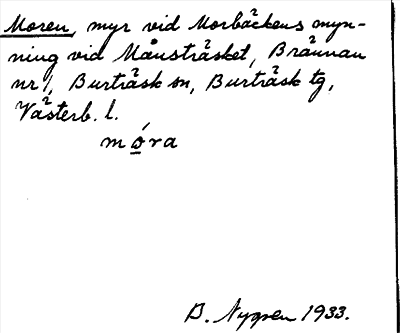 Moren, myr vid Morbäckens myn-
ning vid Månsträsket, Brännan
nr 1, Burträsk sn, Burträsk tg,
Västerb. l.
móra
B. Nygren 1933.